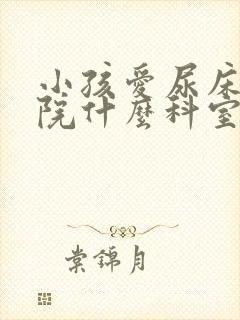 小孩愛尿床
院什麼科室
棠錦月